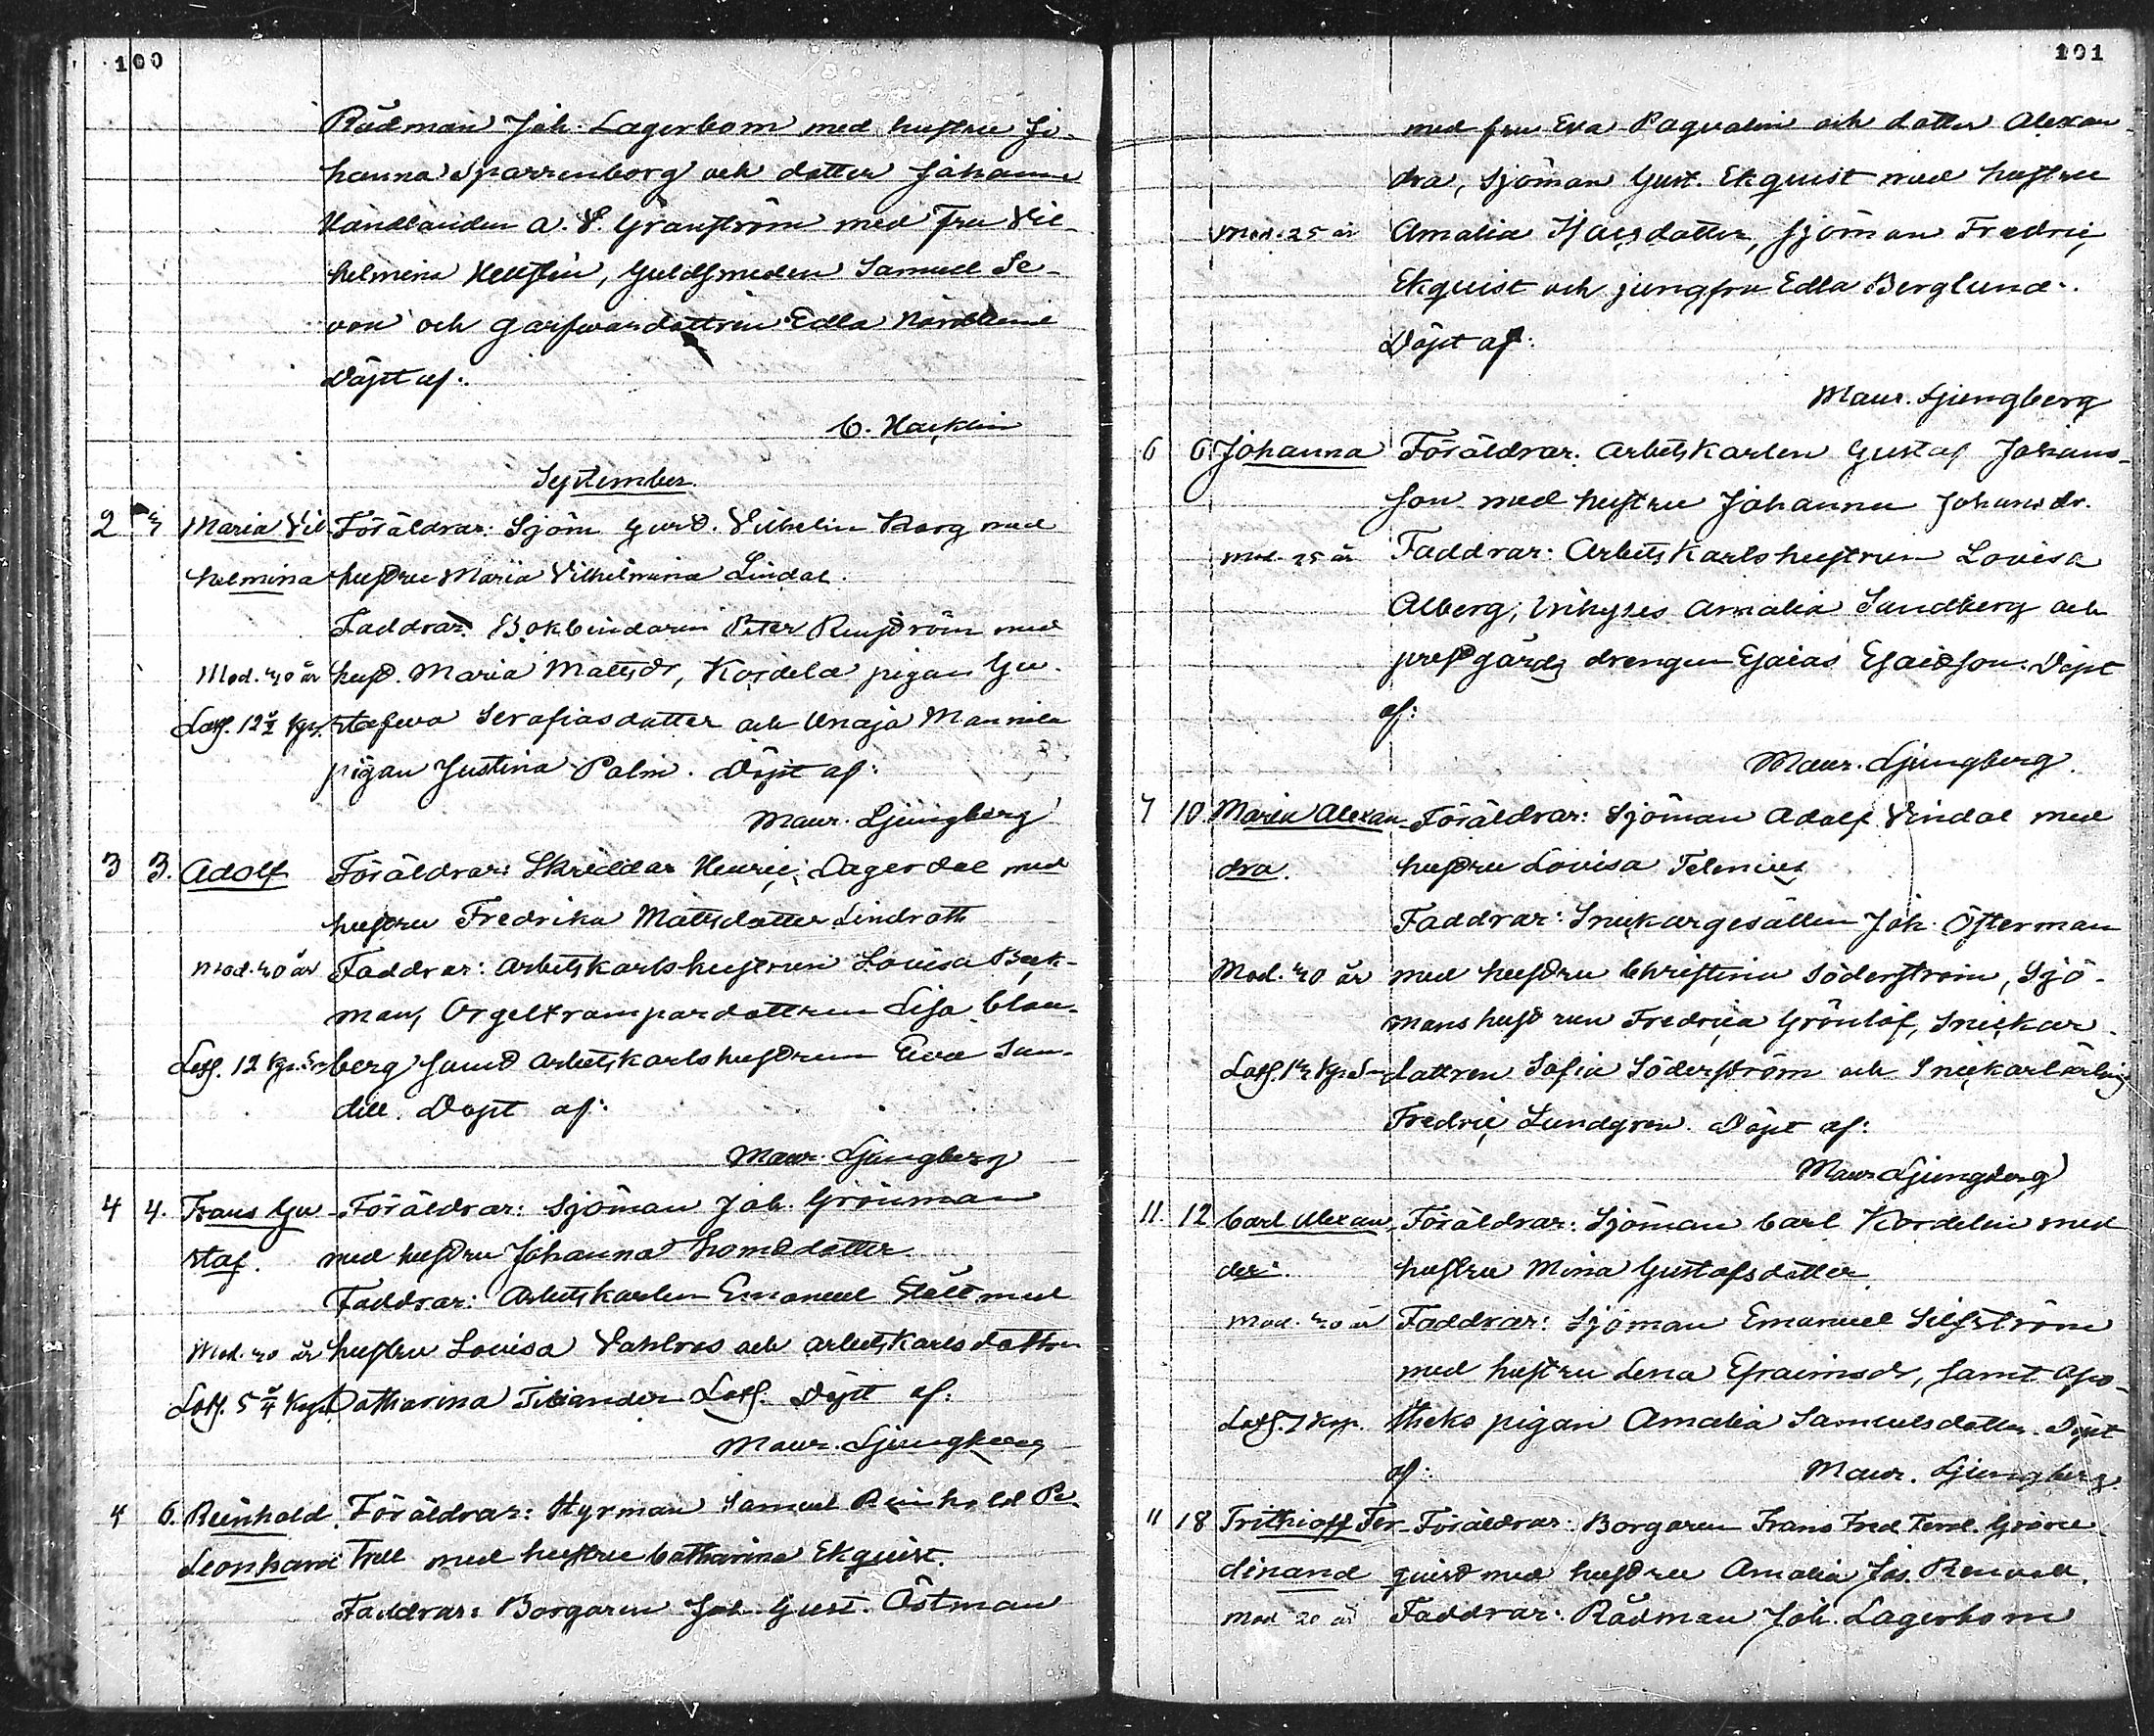 100
Rådman Joh. Lagerbom med hustru Jo-
hanna Sparrenborg och dotter Johanna
Handlanden A. V. Granström med Fru Vil-
helmina Hellstin, Guldsmeden Samuel Se-
von och garfwaredottren Edla
Döpt af:
C. Hacklin
September.
2 3 Maria Vil- Föräldrar: Sjöm Gust. Vilhelm Borg med
helmina hustru Maria Vilhelmina Lindal.
Faddrar: Bokbindaren Peter Renström med
Mod. 40 år hust. Maria Mattsdr, Kordela pigan Gu-
stafva Serafiasdotter och Unaja Mannila
pigan Justina Palm. Döpt af:
Maur. Ljungberg
3 3. Adolf Föräldrar: Skräddar Henric Lagerdal med
hustru Fredrika Mattsdotter Lindroth
Mod. 40 år Faddrar: Arbetskarlshustrun Lovisa Beck-
man, Orgeltramparedottren Lisa Blom-
Läsf. 12 Kgr. berg samt arbetskarlshustrun Eva Sun-
dell. Döpt af:
Maur. Ljungberg
4 4. Frans Gu- Föräldrar: Sjöman Joh. Grönman
staf. med hustru Johanna Thomasdotter
Faddrar: Arbetskarlen Emanuel Ståll med
Mod. 40 år hustru Lovisa Vahlros och arbetskarlsdottren
Catharina Döpt af:
Maur. Ljungberg
4 6. Reinhold Föräldrar: Styrman Samuel Reinhold Pe-
Leonhard trell med hustru Catharina Ekquist.
Faddrar: Borgaren Joh. Gust. Östman
101
med fru Eva Paqvalin och dotter Alexan-
dra, Sjöman Gust. Ekquist med hustru
Mod. 25 år Amalia Isacsdotter, Sjöman Fredric
Ekquist och jungfru Edla Berglund.
Döpt af:
Maur. Ljungberg
6 6 Johanna Föräldrar: Arbetskarlen Gustaf Johans-
son med hustru Johanna Johansdr.
Mod. 25 år Faddrar: Arbetskarlshustrun Lovisa
Alberg, Amalia Sandberg och
prestgårds drengen Esaias Esaiasson. Döpt
af:
Maur. Ljungberg.
7 10 Maria Alexan- Föräldrar: Sjöman Adolf Lindal med
dra. hustru Lovisa Telenius
Faddrar: Snickargesällen Joh. Österman
Mod. 40 år med hustru Christina Söderström, Sjö-
manshustrun Fredrica Grönlöf, Snickar-
dottren Sofia Söderström och Snickarlärling
Fredric Lundgren. Döpt af:
Maur. Ljungberg
11 12 Carl Alexan- Föräldrar: Sjöman Carl Kordelin med
der. hustru Mina Gustafsdotter
Mod. 40 år Faddrar: Sjöman Emanuel Silfström
med hustru Lena Efraimsdr, samt apo-
theks pigan Amalia Samuelsdotter. Döpt
af: Maur. Ljungberg.
11 18 Frithioff Fer- Föräldrar: Borgaren Frans Fred. Ferd. Grön-
dinand quist med hustru Amalia Renvall.
Mod 20 år Faddrar: Rådman Joh. Lagerbom